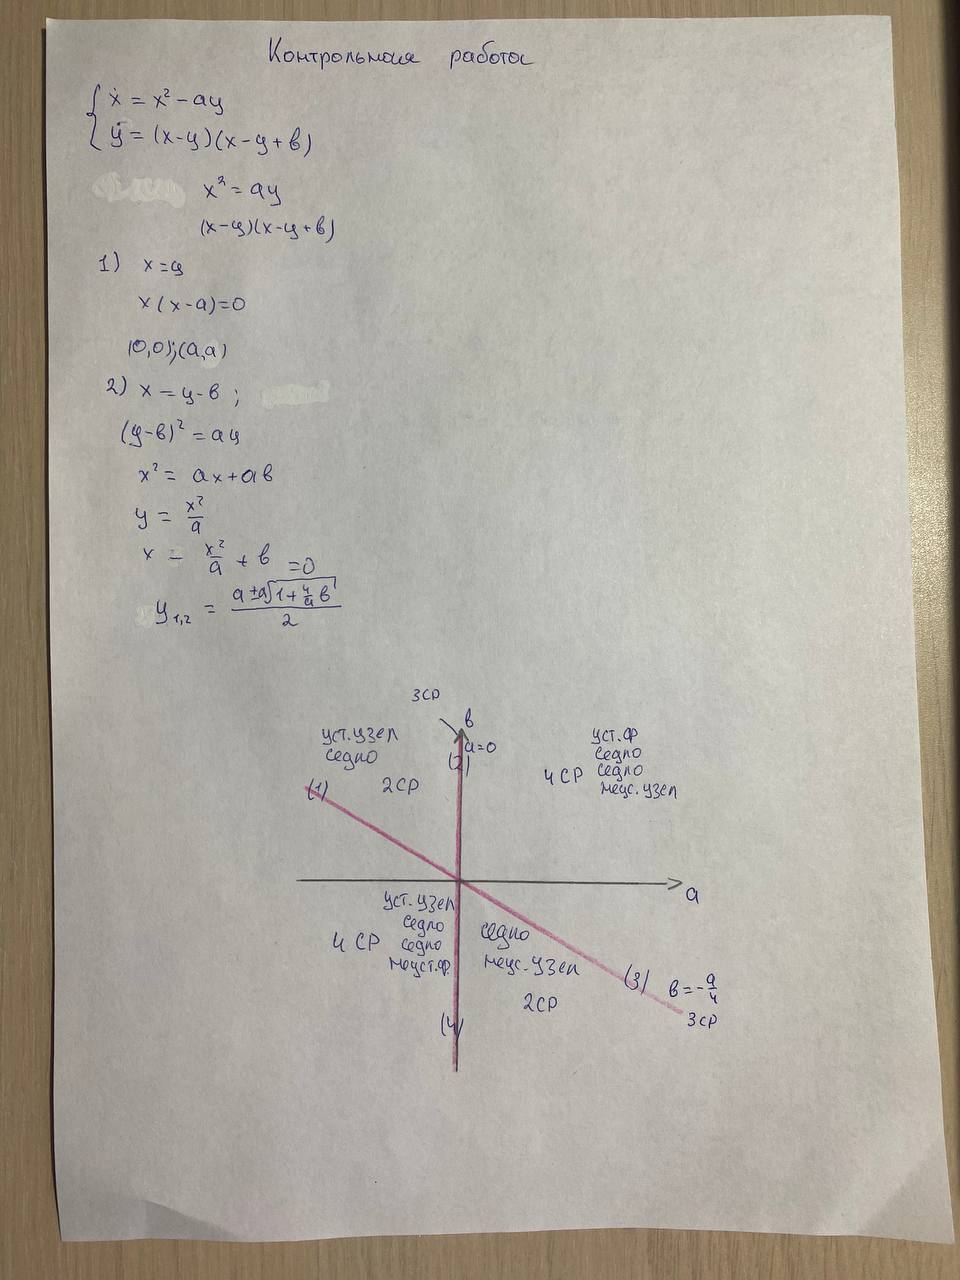 Контрольная работа
ẋ = x² - ay
ẏ = (x-y)(x-y+b)
x² = ay
(x-y)(x-y+b)
1) x=y
x(x-a)=0
(0,0);(a,a)
2) x = y-b ;
(y-b)² = ay
x² = ax+ab
y = x²/a
x - x²/a + b =0
y₁,₂ = (a±a√(1+4/a b))/2
3СР
b
уст.узел
седло
a=0
(2)
уст.ф
седло
4 СР седло
неус.узел
2СР
(1)
a
уст.узел
седло
4 СР седло
неуст.ф.
седло
неус.узел
2СР
(3) b=-a/4
3СР
(4)